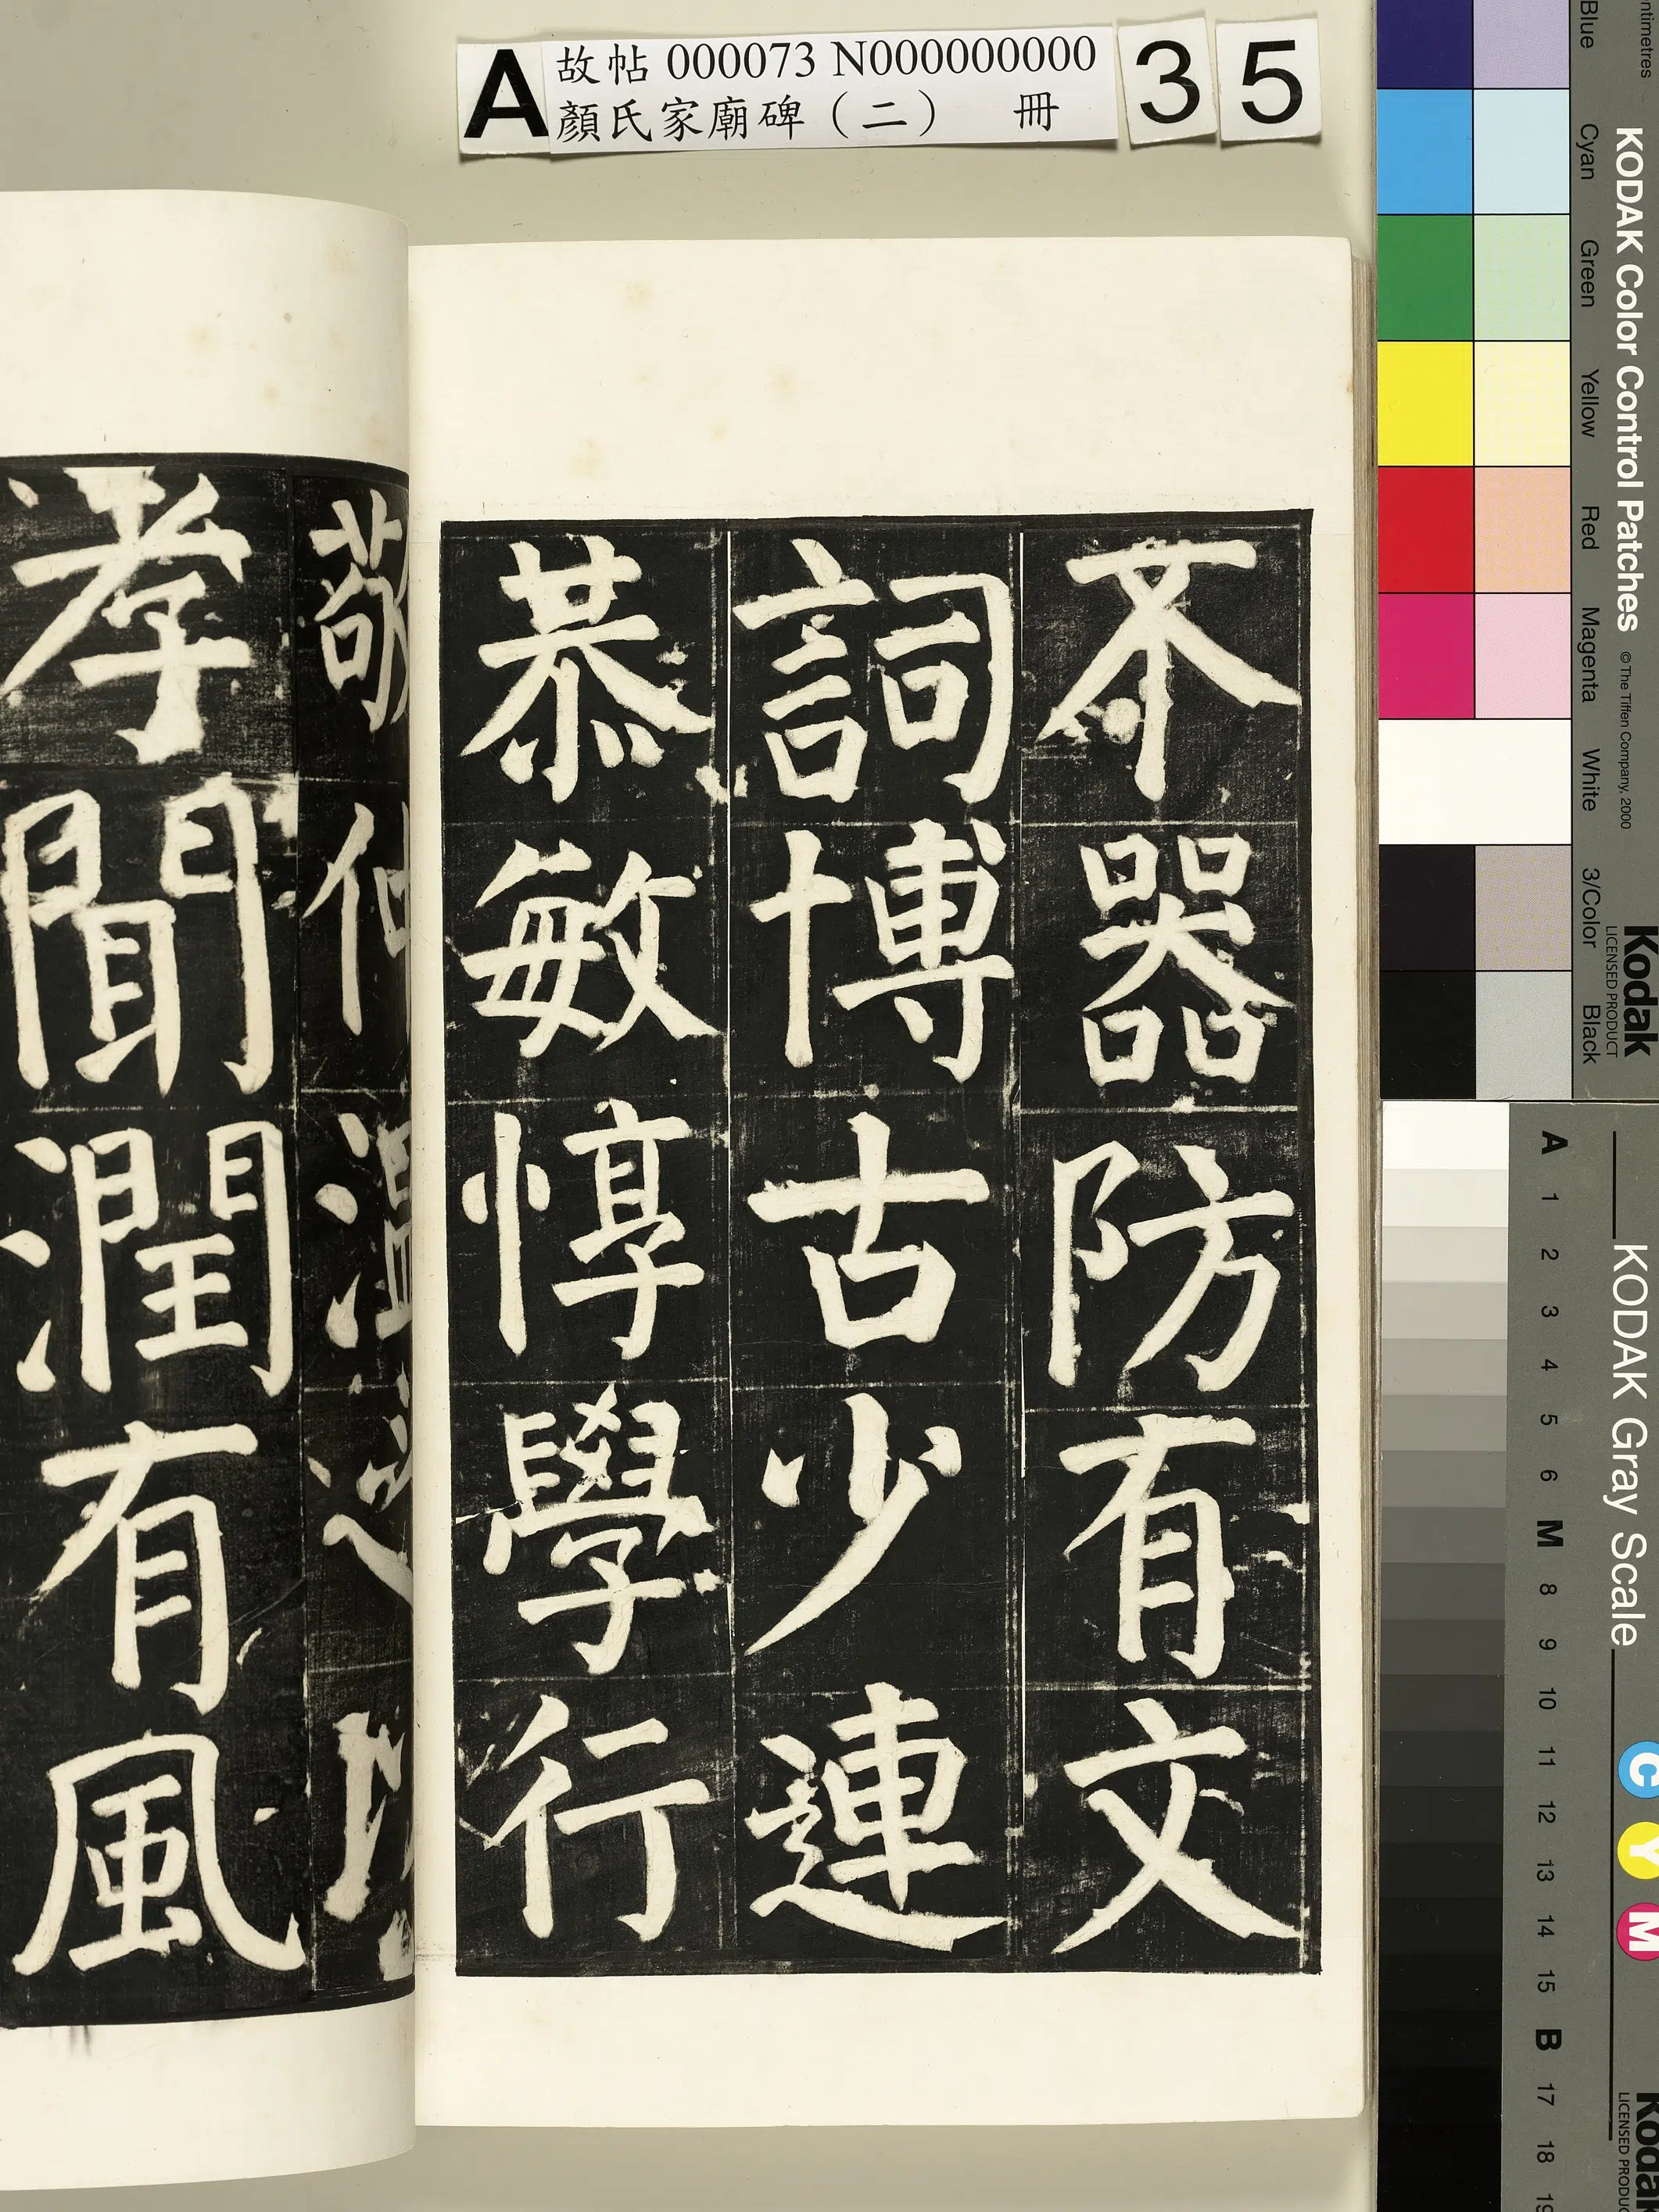 A 故帖 000073 N000000000 3 5
顏氏家廟碑（二） 冊
不器防有文
詞博古少連
恭敏惇學行
敬仲溫
孝聞潤有風
KODAK Color Control Patches © The Tiffen Company, 2000
Kodak
LICENSED PRODUCT
Blue Cyan Green Yellow Red Magenta White 3/Color Black
KODAK Gray Scale
A 1 2 3 4 5 6 M 8 9 10 11 12 13 14 15 B 17 18 19
C Y M
Kodak
LICENSED PRODUCT